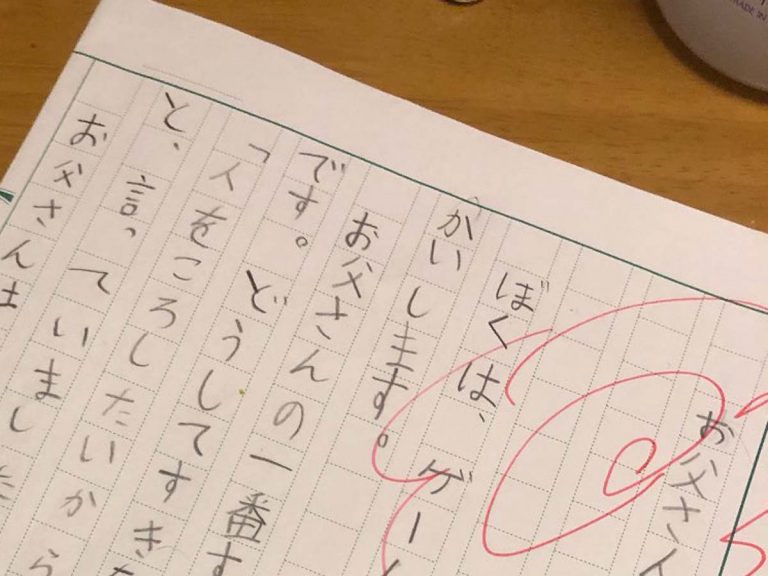 お父さん
ぼくは、ゲー
かいします。
お父さんの一番す
です。どうしてすきな
「人をころしたいから
と、言っていました
お父さんは
MADE IN